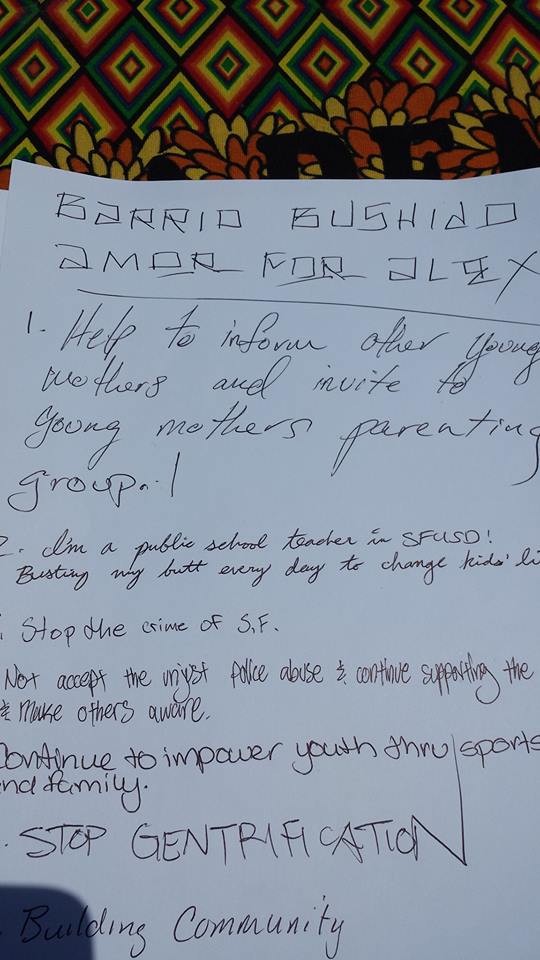 BARRIO BUSHIDO
AMOR FOR ALEX
1. Help to inform other young
mothers and invite to
young mothers parenting
group..!
2. I'm a public school teacher in SFUSD!
Busting my butt every day to change kids' li
Stop the crime of S.F.
Not accept the unjust police abuse & continue supporting the
& make others aware.
Continue to impower youth thru sports
and family.
STOP GENTRIFICATION
Building Community